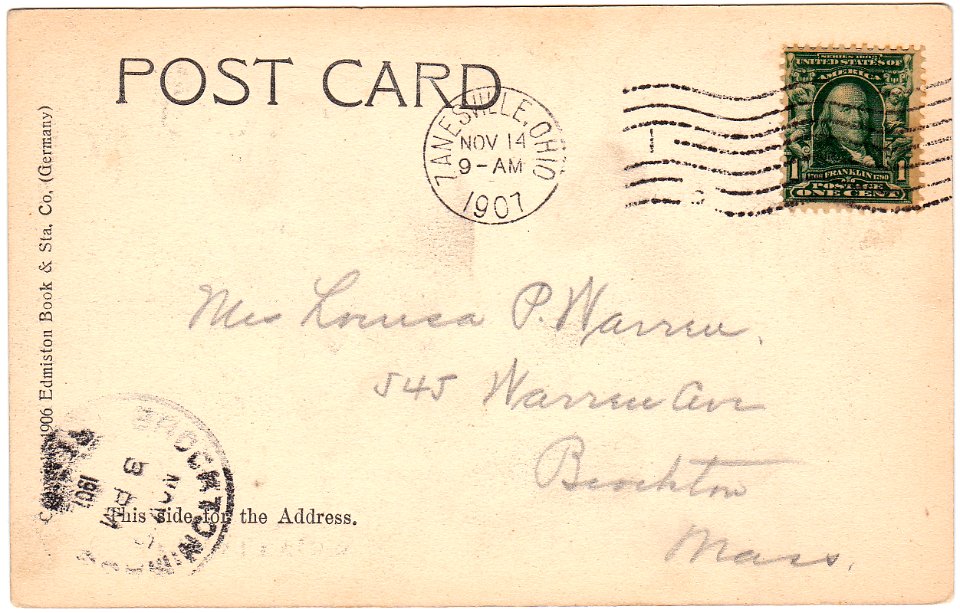 POST CARD
ZANESVILLE, OHIO
NOV 14
9-AM
1907
1
SERIES 1902
UNITED STATES OF
AMERICA
1 FRANKLIN 1790 1
POSTAGE
ONE CENT
1906 Edmiston Book & Sta. Co, (Germany)
Mrs Louisa P. Warren.
545 Warren Ave
Brockton
Mass.
BROCKTON
NOV
1907
This side for the Address.